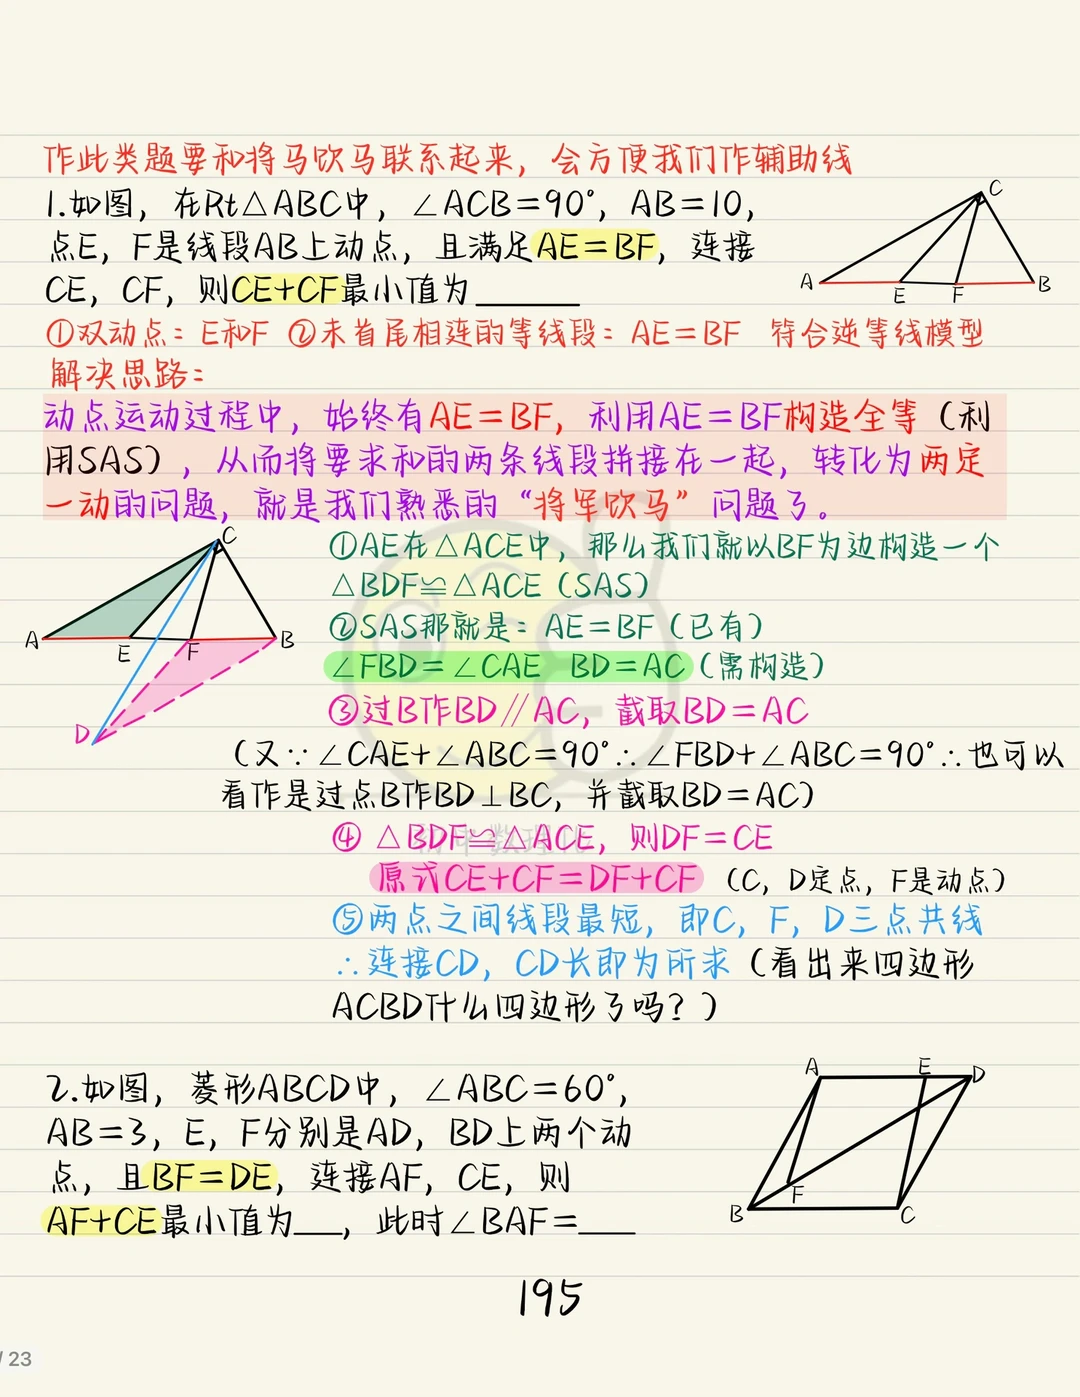 作此类题要和将马饮马联系起来，会方便我们作辅助线
1.如图，在Rt△ABC中，∠ACB=90°，AB=10，
点E，F是线段AB上动点，且满足AE=BF，连接
CE，CF，则CE+CF最小值为______
C
A
E
F
B
①双动点：E和F ②未首尾相连的等线段：AE=BF 符合逆等线模型
解决思路：
动点运动过程中，始终有AE=BF，利用AE=BF构造全等（利
用SAS），从而将要求和的两条线段拼接在一起，转化为两定
一动的问题，就是我们熟悉的“将军饮马”问题了。
C
A
E
F
B
D
①AE在△ACE中，那么我们就以BF为边构造一个
△BDF≌△ACE（SAS）
②SAS那就是：AE=BF（已有）
∠FBD=∠CAE BD=AC（需构造）
③过B作BD∥AC，截取BD=AC
（又∵∠CAE+∠ABC=90°∴∠FBD+∠ABC=90°∴也可以
看作是过点B作BD⊥BC，并截取BD=AC）
④ △BDF≌△ACE，则DF=CE
原式CE+CF=DF+CF（C，D定点，F是动点）
⑤两点之间线段最短，即C，F，D三点共线
∴连接CD，CD长即为所求（看出来四边形
ACBD什么四边形了吗？）
初中数理化
2.如图，菱形ABCD中，∠ABC=60°，
AB=3，E，F分别是AD，BD上两个动
点，且BF=DE，连接AF，CE，则
AF+CE最小值为___，此时∠BAF=___
A
E
D
F
B
C
195
/ 23